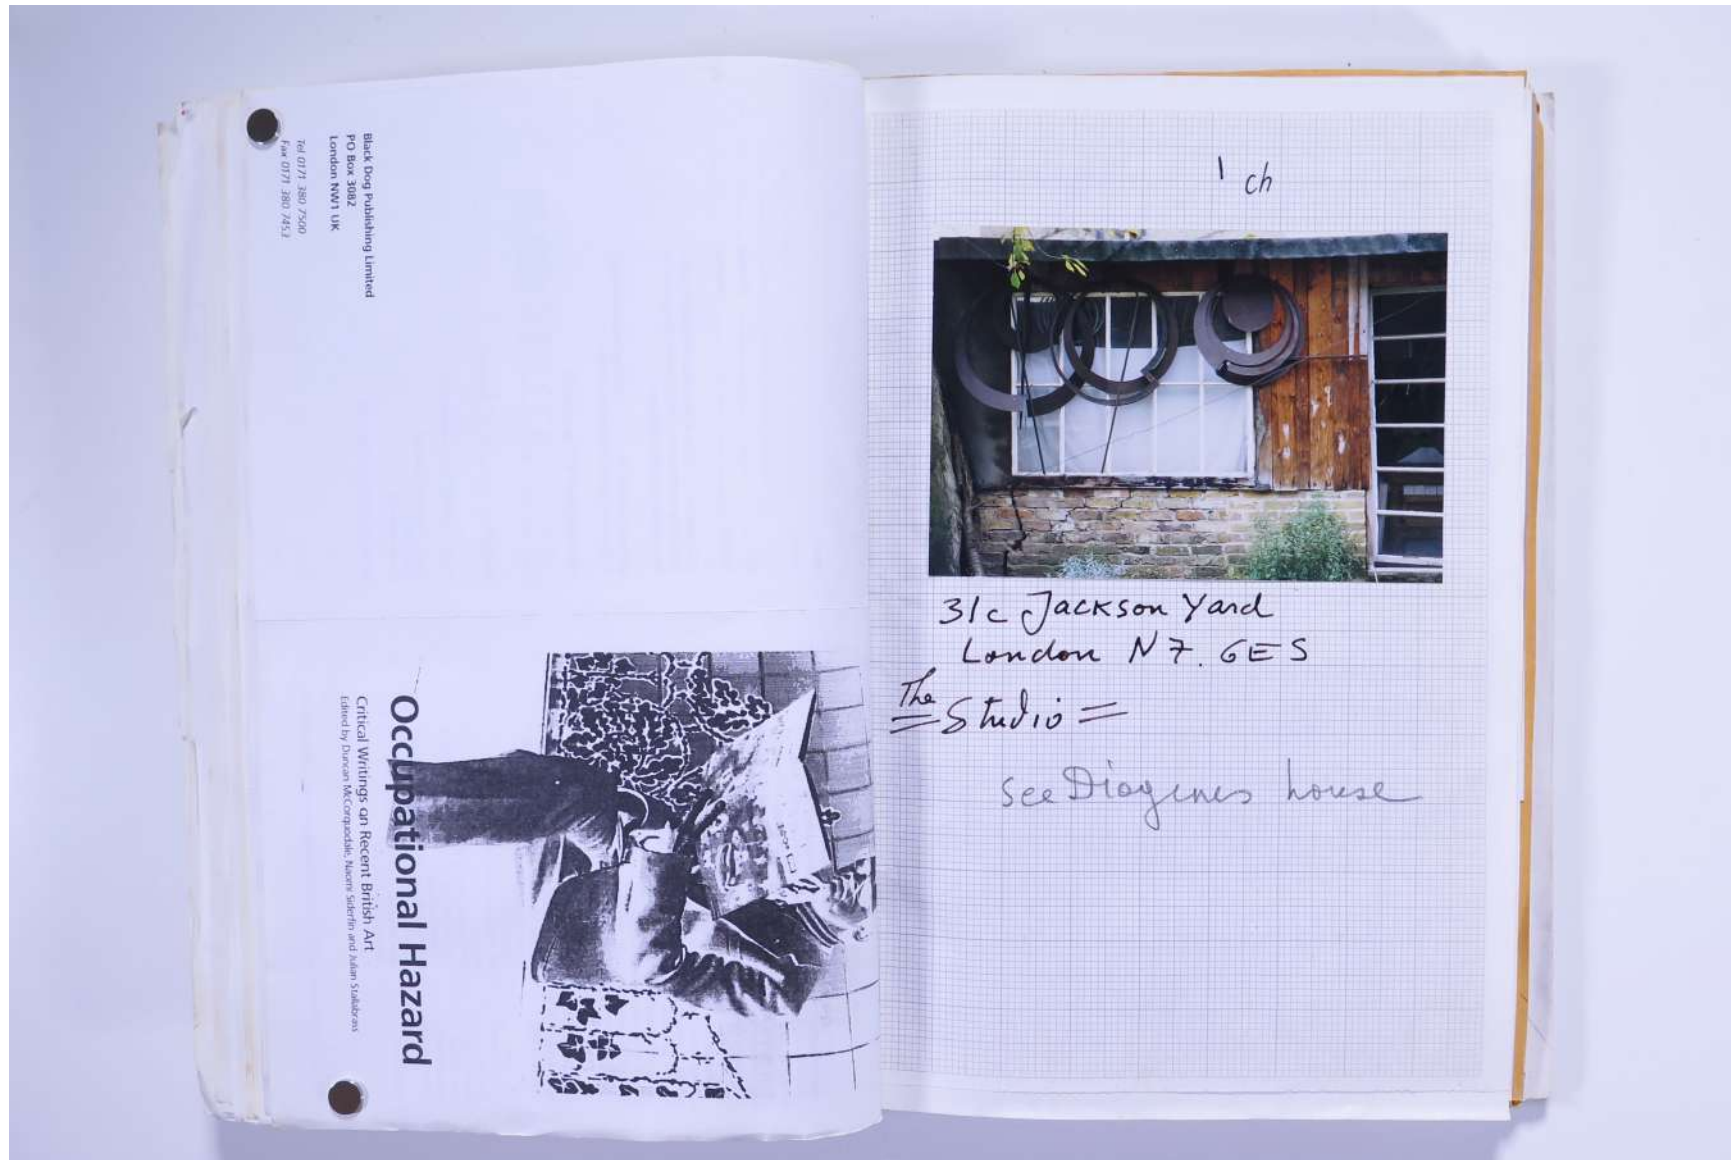 Black Dog Publishing Limited
PO Box 3082
London NW1 UK
Tel 0171 380 7500
Fax 0171 380 7453
Occupational Hazard
Critical Writings on Recent British Art
Edited by Duncan McCorquodale, Naomi Siderfin and Julian Stallabrass
1 ch
31c Jackson Yard
London N7. 6ES
The
= Studio =
see Diogenes house